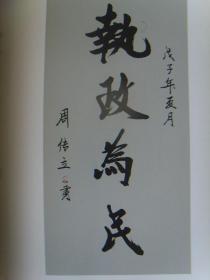 戊子年夏月
執政為民
周传立